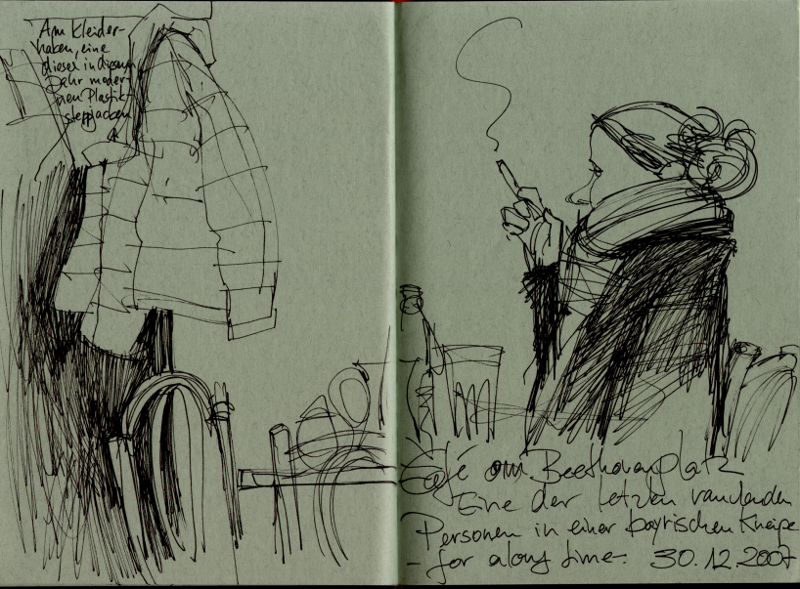 Am Kleider-
haken, eine
dieser in diesem
Jahr moder-
nen Plastik-
steppjacken
Café am Beethovenplatz
Eine der letzten rauchenden
Personen in einer bayrischen Kneipe
- for a long time. 30.12.2007